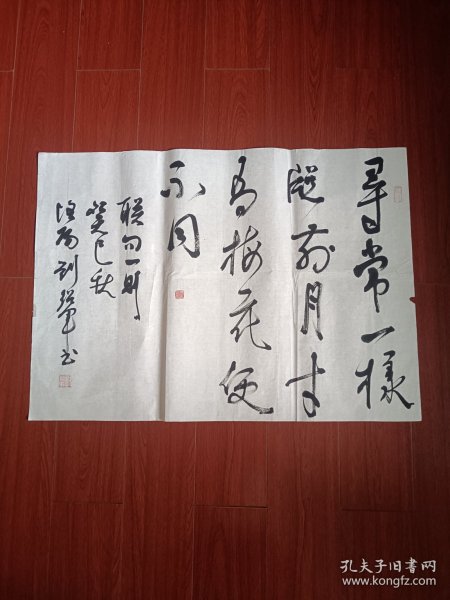 尋常一樣
窗前月才
有梅花便
不同
联句一则
癸巳秋
刘 书
孔夫子旧书网
www.kongfz.com